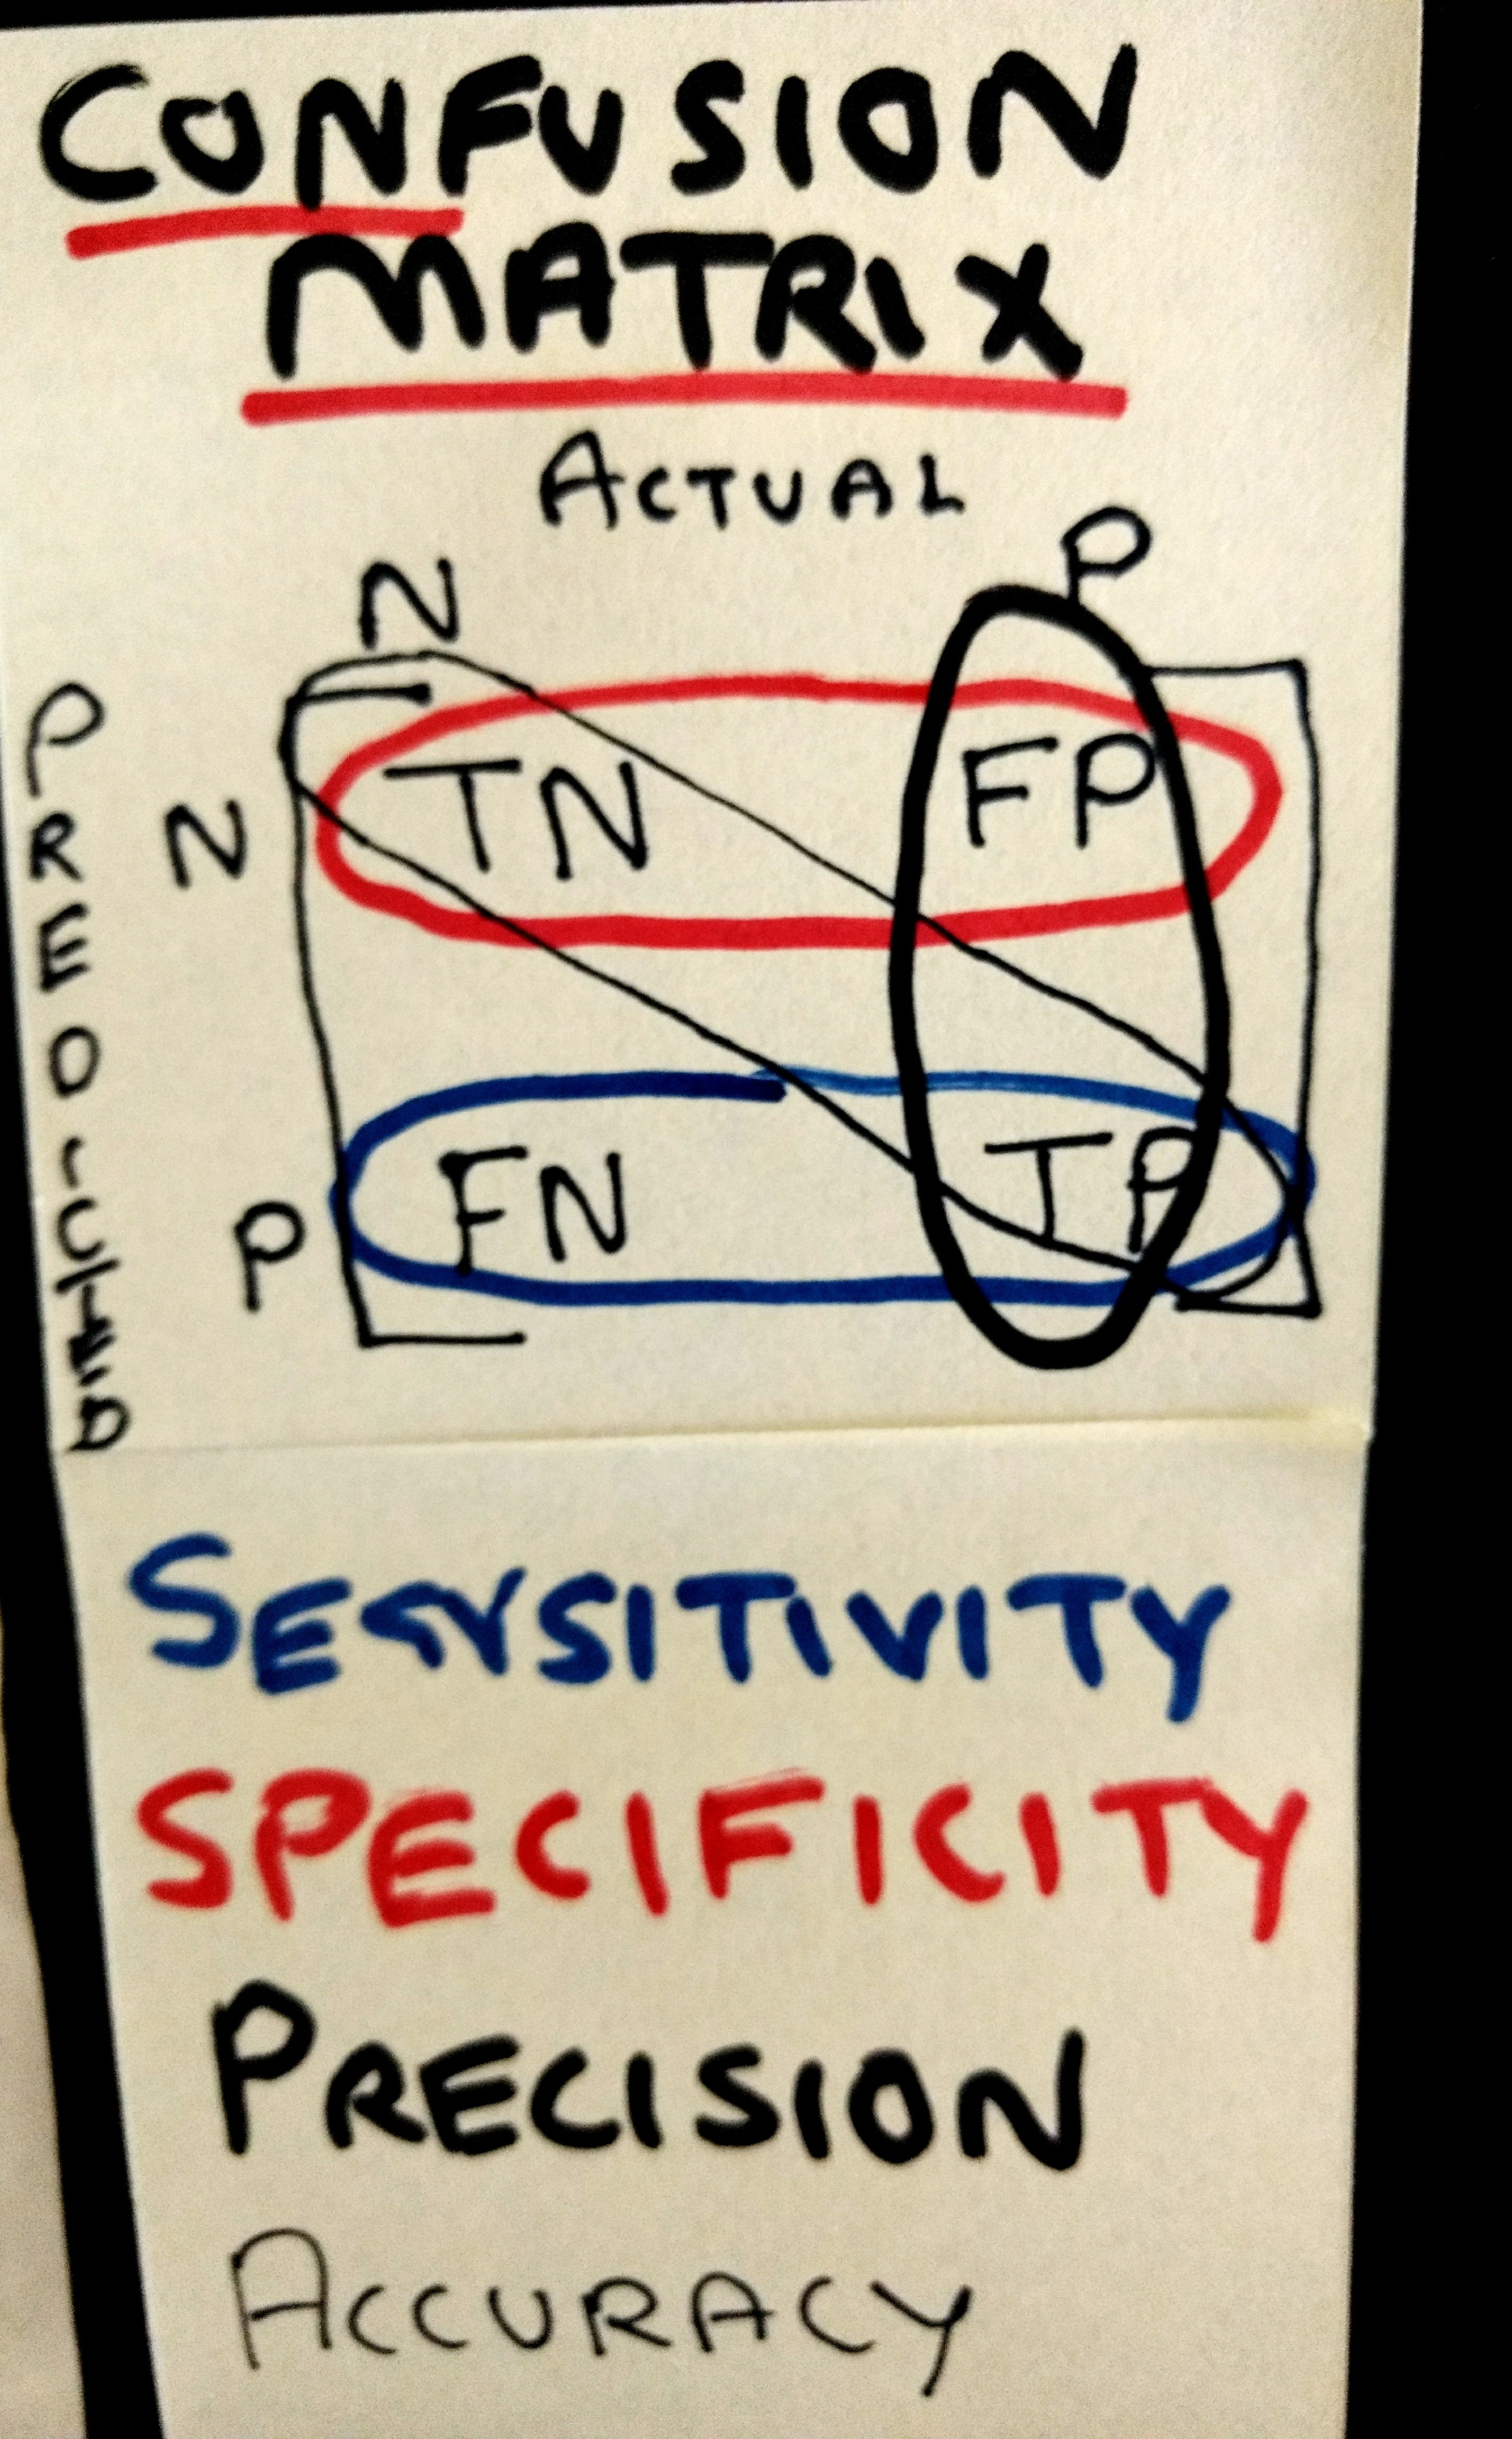 CONFUSION
MATRIX
ACTUAL
N P
PREDICTED
N TN FP
P FN TP
SENSITIVITY
SPECIFICITY
PRECISION
ACCURACY